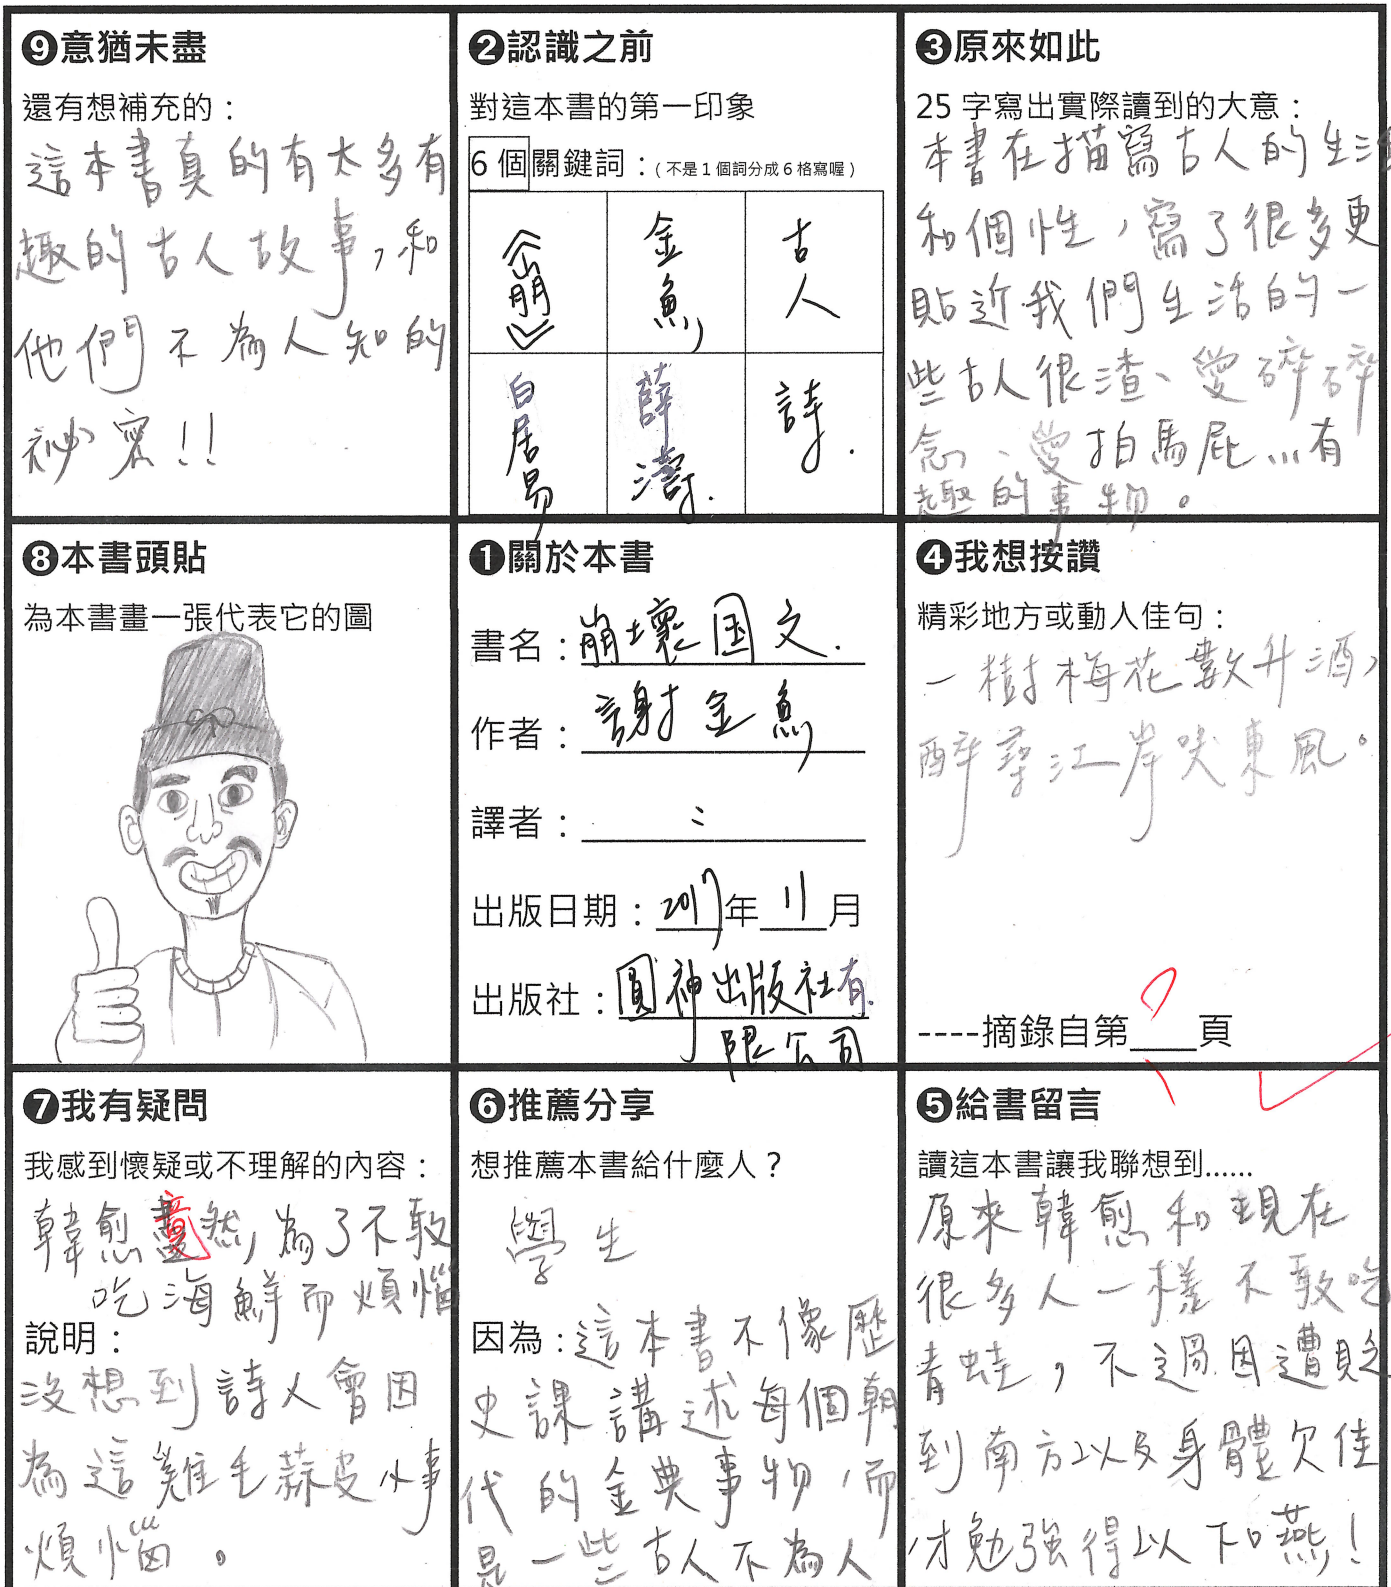 ❾意猶未盡
還有想補充的：
這本書真的有太多有
趣的古人故事，和
他們不為人知的
祕密!!
❷認識之前
對這本書的第一印象
6個關鍵詞：(不是1個詞分成6格寫喔)
《崩》
金魚
古人
白居易
薛濤.
詩.
❸原來如此
25字寫出實際讀到的大意：
本書在描寫古人的生活
和個性，寫了很多更
貼近我們生活的一
些古人很渣、愛碎碎
念、愛拍馬屁...有
趣的事物。
❽本書頭貼
為本書畫一張代表它的圖
❶關於本書
書名：崩壞国文.
作者：謝金魚
譯者：
出版日期：2017年11月
出版社：圓神出版社有
限公司
❹我想按讚
精彩地方或動人佳句：
一樹梅花數升酒，
醉尋江岸笑東風。
----摘錄自第?頁
❼我有疑問
我感到懷疑或不理解的內容：
韓愈竟然，為了不敢
吃海鮮而煩惱
說明：
沒想到詩人會因
為這雞毛蒜皮小事
煩惱。
❻推薦分享
想推薦本書給什麼人？
學生
因為：這本書不像歷
史課講述每個朝
代的金典事物，而
是一些古人不為人
❺給書留言
讀這本書讓我聯想到......
原來韓愈和現在
很多人一樣不敢吃
青蛙，不過因遭貶
到南方以及身體欠佳
才勉強得以下嚥！